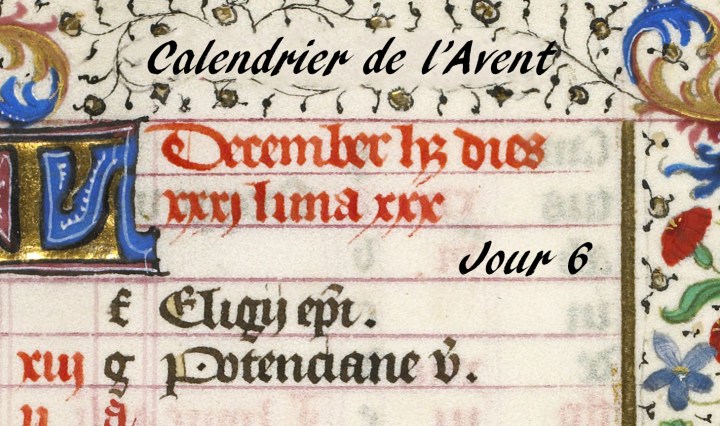 Calendrier de l'Avent
December hꝫ dies
xxxj luna xxx
Jour 6
f Eligij epi.
xiij g Potenciane v̄.
ij a